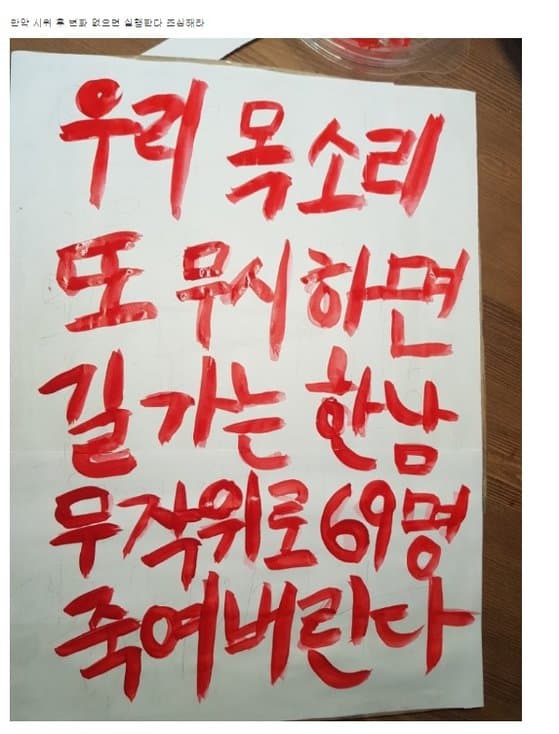 만약 시위 후 변화 없으면 실행한다 조심해라
우리 목소리
또 무시하면
길 가는 한남
무작위로 69명
죽여버린다